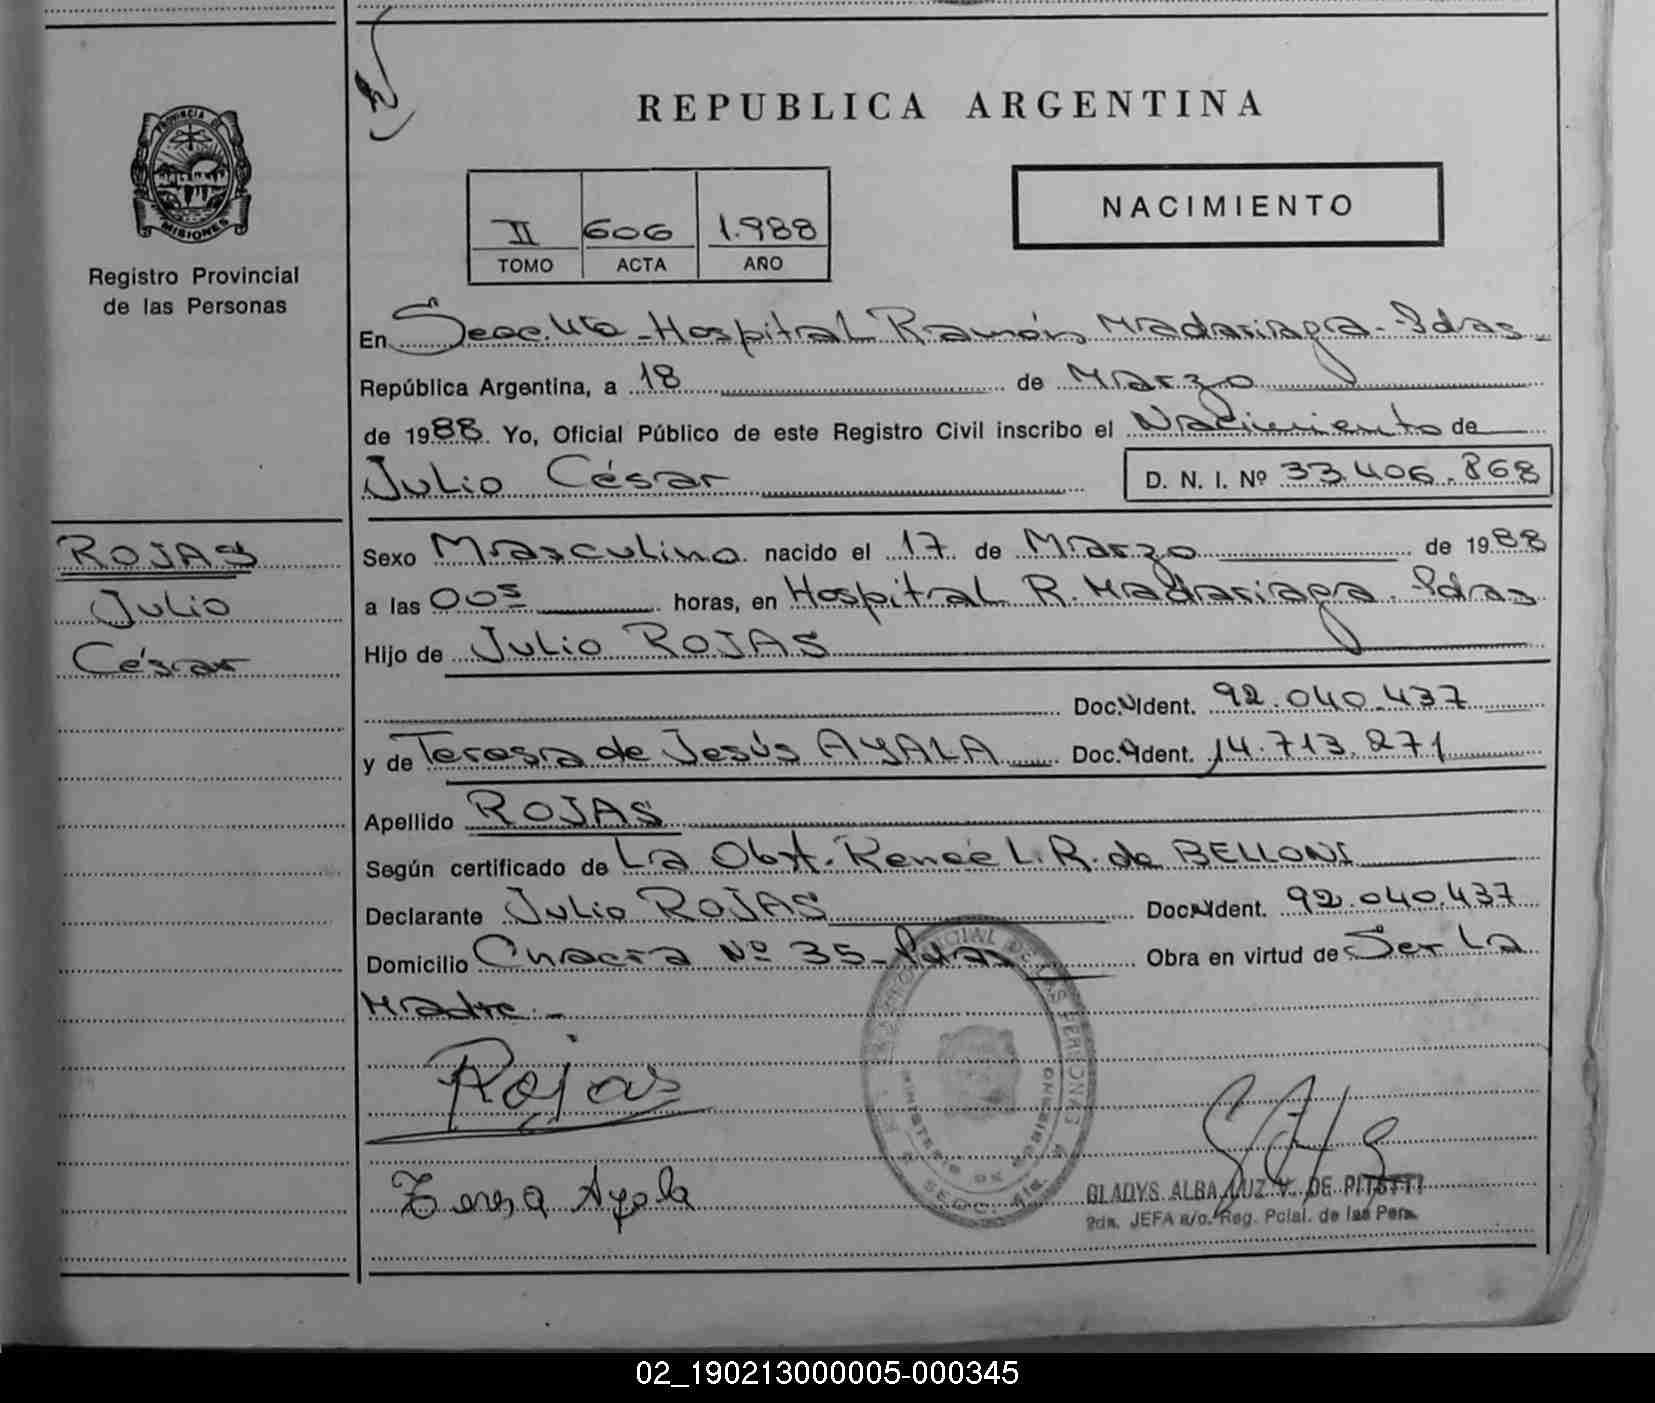 PROVINCIA DE
MISIONES
Registro Provincial
de las Personas
REPUBLICA ARGENTINA
NACIMIENTO
II 606 1.988
TOMO ACTA AÑO
En Secc. 4ta - Hospital Ramón Madariaga - Pdas -
República Argentina, a 18 de Marzo
de 1988. Yo, Oficial Público de este Registro Civil inscribo el Nacimiento de
Julio César D. N. I. Nº 33.406.868
ROJAS
Julio
César
Sexo Masculino nacido el 17 de Marzo de 1988
a las 00⁵ horas, en Hospital R. Madariaga - Pdas
Hijo de Julio ROJAS
Doc. Ident. 92.040.437
y de Teresa de Jesús AYALA Doc. Ident. 14.713.271
Apellido ROJAS
Según certificado de La Obst. Reneé L. R. de BELLONI
Declarante Julio ROJAS Doc. Ident. 92.040.437
Domicilio Chacra Nº 35 - Pdas Obra en virtud de Ser La
Madre. -
Rojas
Teresa Ayala
MINISTERIO DE GOBIERNO
GLADYS ALBA LUZ V. DE PITOTTI
2da. JEFA a/c. Reg. Pcial. de las Pers.
02_190213000005-000345